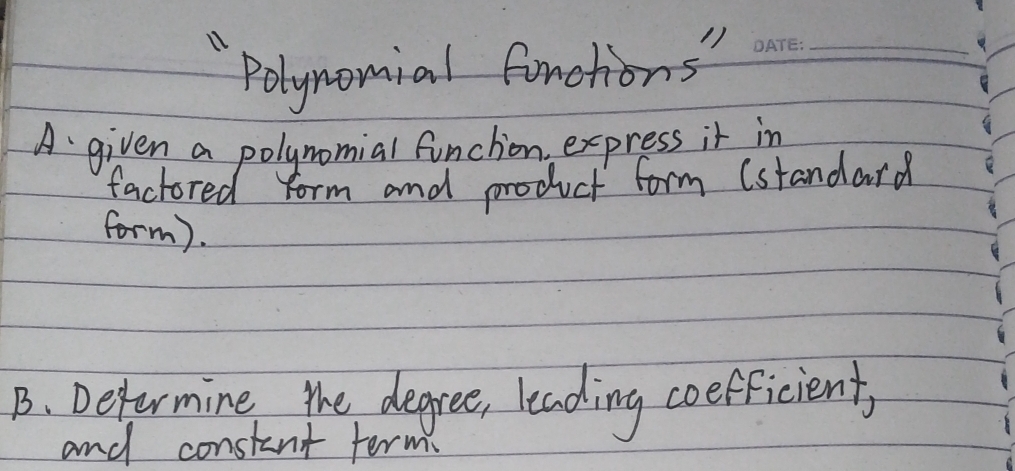 "Polynomial functions"
DATE:
A. given a polynomial function. express it in
factored form and product form (standard
form).
B. Determine the degree, leading coefficient,
and constant term.